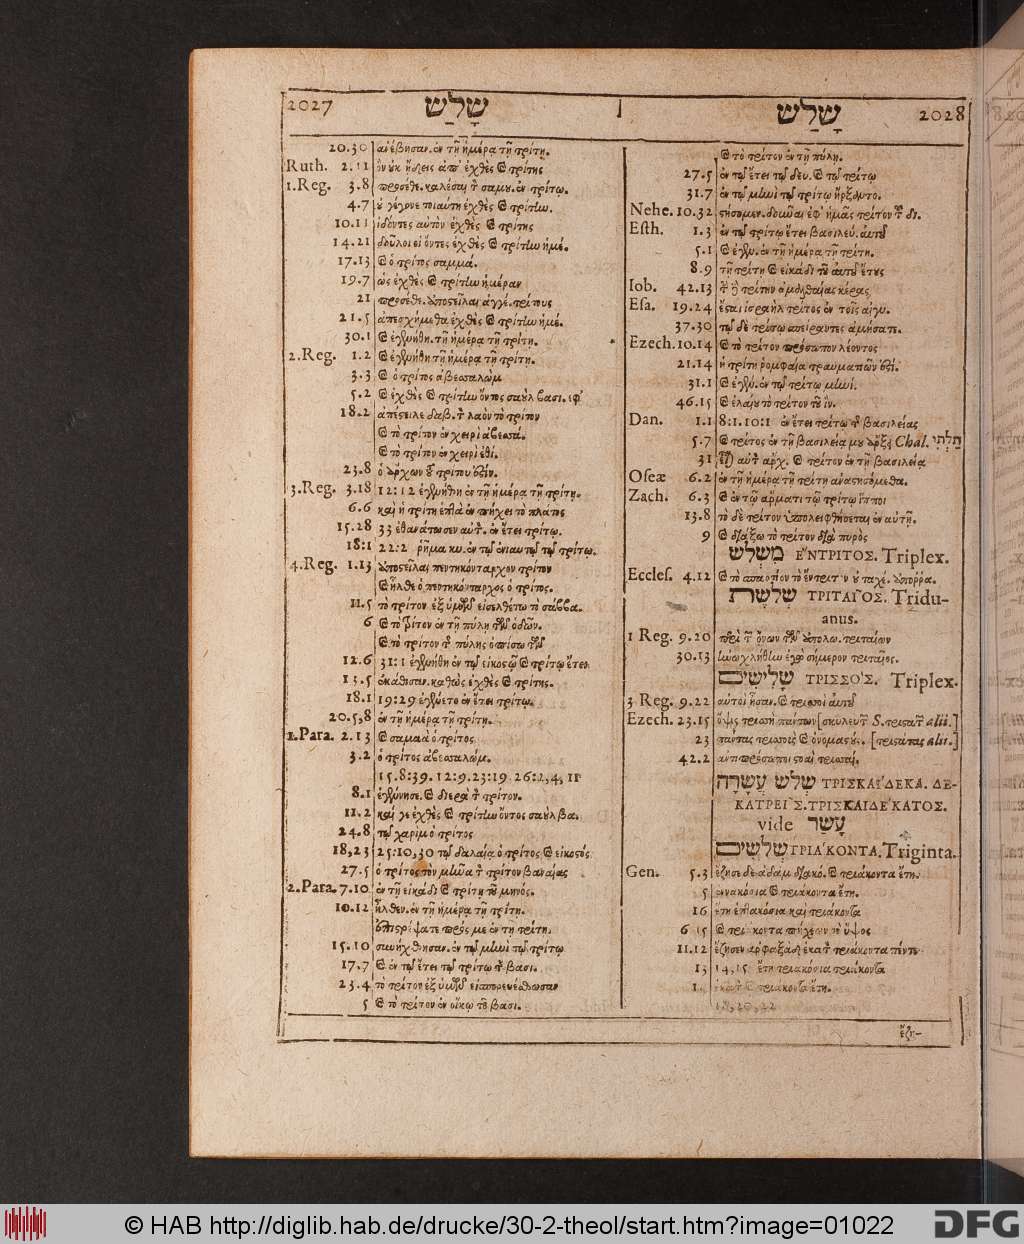 2027 שָׁלַשׁ
20.30 ἀνέβησαν. ἐν τῇ ἡμέρᾳ τῇ τρίτῃ.
Ruth. 2.11 ὃν οὐκ ᾔδεις ἀπ' ἐχθὲς ϗ τρίτης
1.Reg. 3.8 προσέθε. καλέσαι τ̀ σαμου. ἐν τρίτῳ.
4.7 οὐ γέγονε τοιαύτη ἐχθὲς ϗ τρίτην.
10.11 ἰδόντες αὐτὸν ἐχθὲς ϗ τρίτης
14.21 δοῦλοι οἱ ὄντες ἐχθὲς ϗ τρίτην ἡμέ.
17.13 ϗ ὁ τρίτος σαμμά.
19.7 ὡς ἐχθὲς ϗ τρίτην ἡμέραν
21 προσέθε. ἀποστεῖλαι ἀγγέ. τρίτους
21.5 ἀπεσχήμεθα ἐχθὲς ϗ τρίτην ἡμέ.
30.1 ϗ ἐγενήθη. τῇ ἡμέρᾳ τῇ τρίτῃ.
2.Reg. 1.2 ϗ ἐγενήθη τῇ ἡμέρᾳ τῇ τρίτῃ.
3.3 ϗ ὁ τρίτος ἀβεσσαλὼμ
5.2 ϗ ἐχθὲς ϗ τρίτην ὄντος σαοὺλ βασι. ἐφ'
18.2 ἀπέστειλε δαβ. τ̀ λαὸν τὸ τρίτον
ϗ τὸ τρίτον ἐν χειρὶ ἀβεσσά.
ϗ τὸ τρίτον ἐν χειρὶ ἐθί.
23.8 ὁ ἄρχων τρίτου ὅτιν.
3.Reg. 3.18 12:12 ἐγενήθη ἐν τῇ ἡμέρᾳ τῇ τρίτῃ.
6.6 καὶ ἡ τρίτη ἑπτὰ ἐν πήχει τὸ πλάτος
15.28 33 ἐθανάτωσεν αὐτ̀. ἐν ἔτει τρίτῳ.
18:1 22:2 ῥῆμα κυ. ἐν τῷ ἐνιαυτῷ τῷ τρίτῳ.
4.Reg. 1.13 ἀποστεῖλαι πεντηκόνταρχον τρίτον
ϗ ἦλθε ὁ πεντηκόνταρχος ὁ τρίτος.
11.5 τὸ τρίτον ἐξ ὑμῶν εἰσελθέτω τὸ σάββα.
6 ϗ τὸ τρίτον ἐν τῇ πύλῃ τῶν ὁδῶν.
ϗ τὸ τρίτον τ̀ πύλης ὀπίσω τῶν
12.6 31:1 ἐγενήθη ἐν τῷ εἰκοστῷ ϗ τρίτῳ ἔτει
13.5 ἐκάθισαν. καθὼς ἐχθὲς ϗ τρίτης.
18.1 19:29 ἐγένετο ἐν ἔτει τρίτῳ.
20.5,8 ἐν τῇ ἡμέρᾳ τῇ τρίτῃ.
1.Para. 2.13 ϗ σαμαὰ ὁ τρίτος
3.2 ὁ τρίτος ἀβεσσαλώμ.
15.8:39. 12:9.23:19. 26:2,4, 11
8.1 ἐγέννησε. ϗ διερὰ τ̀ τρίτον.
11.2 καί γε ἐχθὲς ϗ τρίτην ὄντος σαοὺλ βα.
24.8 τῷ χαρὶμ ὁ τρίτος
18,23 25:10,30 τῷ δαλαίᾳ ὁ τρίτος ϗ εἰκοστός
27.5 ὁ τρίτος τὸν μῆνα τ̀ τρίτον βαναίας
2.Para. 7.10 ἐν τῇ εἰκάδι ϗ τρίτῃ τοῦ μηνός.
10.12 ἦλθεν. ἐν τῇ ἡμέρᾳ τῇ τρίτῃ.
ἐπιστρέψατε πρός με ἐν τῇ τρίτῃ.
15.10 συνήχθησαν. ἐν τῷ μηνὶ τῷ τρίτῳ
17.7 ϗ ἐν τῷ ἔτει τῷ τρίτῳ τ̀ βασι.
23.4 τὸ τρίτον ἐξ ὑμῶν εἰσπορευέσθωσαν
5 ϗ τὸ τρίτον ἐν οἴκῳ τοῦ βασι.
שָׁלַשׁ 2028
ϗ τὸ τρίτον ἐν τῇ πύλῃ.
27.5 ἐν τῷ ἔτει τῷ δευ. ϗ τῷ τρίτῳ
31.7 ἐν τῷ μηνὶ τῷ τρίτῳ ἤρξαντο.
Nehe. 10.32 στήσομεν. δοῦναι ἐφ' ἡμᾶς τρίτον τ̀ δι.
Esth. 1.3 ἐν τῷ τρίτῳ ἔτει βασιλεύ. αὐτοῦ
5.1 ϗ ἐγέν. ἐν τῇ ἡμέρᾳ τῇ τρίτῃ.
8.9 τῇ τρίτῃ ϗ εἰκάδι τοῦ αὐτοῦ ἔτους
Iob. 42.13 τ̀ ἣ τρίτην ἀμαλθαίας κέρας
Esa. 19.24 ἔσται ἰσραὴλ τρίτος ἐν τοῖς αἰγυ.
37.30 τῷ δὲ τρίτῳ σπείραντες ἀμήσατε.
Ezech. 10.14 ϗ τὸ τρίτον πρόσωπον λέοντος
21.14 ἡ τρίτη ῥομφαία τραυματιῶν ὅτι.
31.1 ϗ ἐγέν. ἐν τῷ τρίτῳ μηνί.
46.15 ϗ ἐλαίου τὸ τρίτον τοῦ ἵν.
Dan. 1.1 8:1.10:1 ἐν ἔτει τρίτῳ τ̀ βασιλείας
5.7 ϗ τρίτος ἐν τῇ βασιλείᾳ μου ἄρξει Chal. תַלְתִּי
31 αὐτ̀ ἄρχ. ϗ τρίτον ἐν τῇ βασιλείᾳ
Oseæ 6.2 ἐν τῇ ἡμέρᾳ τῇ τρίτῃ ἀναστησόμεθα.
Zach. 6.3 ϗ ἐν τῷ ἅρματι τῷ τρίτῳ ἵπποι
13.8 τὸ δὲ τρίτον ὑπολειφθήσεται ἐν αὐτῇ.
9 ϗ διάξω τὸ τρίτον διὰ πυρὸς
מְשֻׁלָּשׁ ἜΝΤΡΙΤΟΣ. Triplex.
Eccles. 4.12 ϗ τὸ σπαρτίον τὸ ἔντριτον οὐ ταχέ. ἀπορρα.
שְׁלֹשֶׁת ΤΡΙΤΑΙ͂ΟΣ. Tridu-
anus.
1 Reg. 9.20 περὶ τ̀ ὄνων τῶν ἀπολω. τριταίων
30.13 ἠνωχλήθην ἐγὼ σήμερον τριταῖος.
שָׁלִישִׁים ΤΡΙΣΣΟ'Σ. Triplex.
3 Reg. 9.22 αὐτοὶ ἦσαν. ϗ τρισσοὶ αὐτοῦ
Ezech. 23.15 ὄψις τρισσὴ πάντων [σκύλευτ̀ S. τριςατ̀ alii.]
23 πάντας τρισσοὺς ϗ ὀνομαςούς. [τριςάτας alii.]
42.2 ἀντιπρόσωποι στοαὶ τρισσαί.
שְׁלֹשׁ עֶשְׂרֵה ΤΡΙΣΚΑΙ'ΔΕΚΑ. ΔΕ-
ΚΑΤΡΕΙ͂Σ. ΤΡΙΣΚΑΙΔΕ'ΚΑΤΟΣ.
vide עָשַׂר
שְׁלֹשִׁים ΤΡΙΑ'ΚΟΝΤΑ. Triginta.
Gen. 5.3 ἔζησε δὲ ἀδὰμ διακό. ϗ τριάκοντα ἔτη.
5 ἐννακόσια ϗ τριάκοντα ἔτη.
16 ἔτη ἑπτακόσια καὶ τριάκοντα
6 15 ϗ τριάκοντα πήχεων τὸ ὕψος
11.12 ἔζησεν ἀρφαξὰδ ἑκατ̀ τριάκοντα πέντε
13 14,15 ἔτη τριακόσια τριάκοντα
ἑκατ̀ ϗ τριάκοντα ἔτη.
18,20,22
ἔζη-
© HAB http://diglib.hab.de/drucke/30-2-theol/start.htm?image=01022 DFG